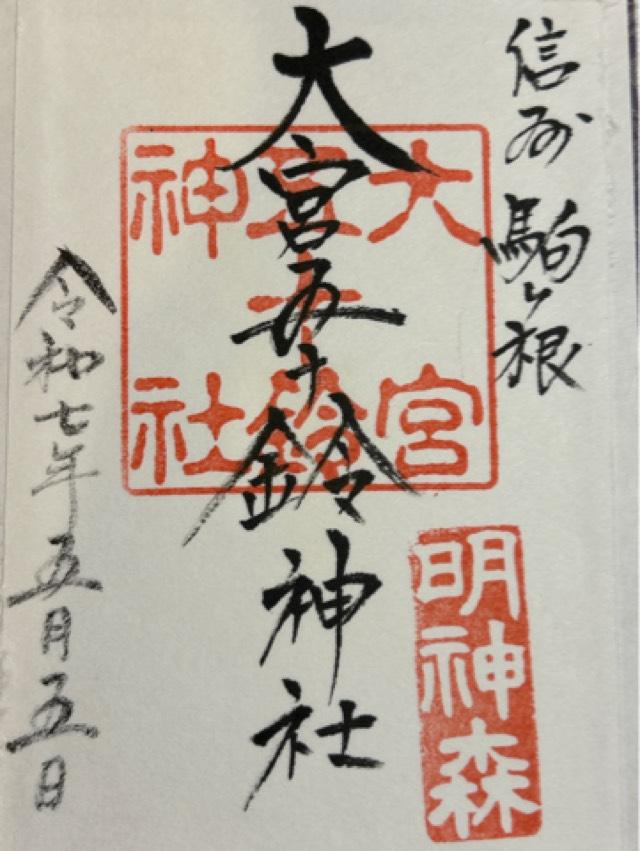 信州 駒ヶ根
大宮五十鈴神社
大宮五十鈴神社
明神森
令和七年五月五日